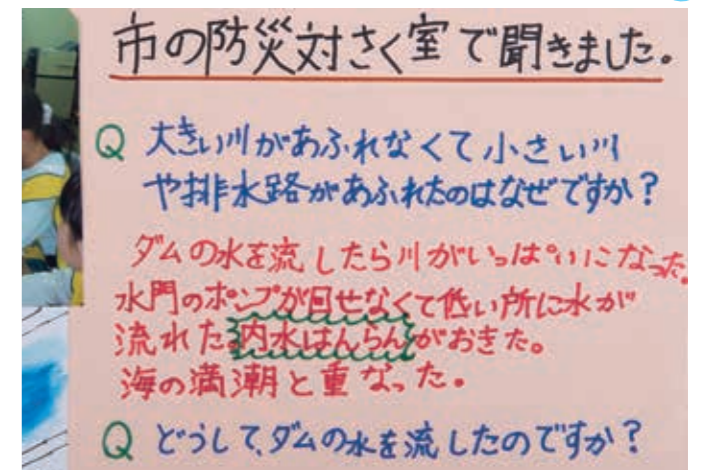 市の防災対さく室で聞きました。
Q 大きい川があふれなくて小さい川
や排水路があふれたのはなぜですか？
ダムの水を流したら川がいっぱいになった。
水門のポンプが回せなくて低い所に水が
流れた。内水はんらんがおきた。
海の満潮と重なった。
Q どうして、ダムの水を流したのですか？